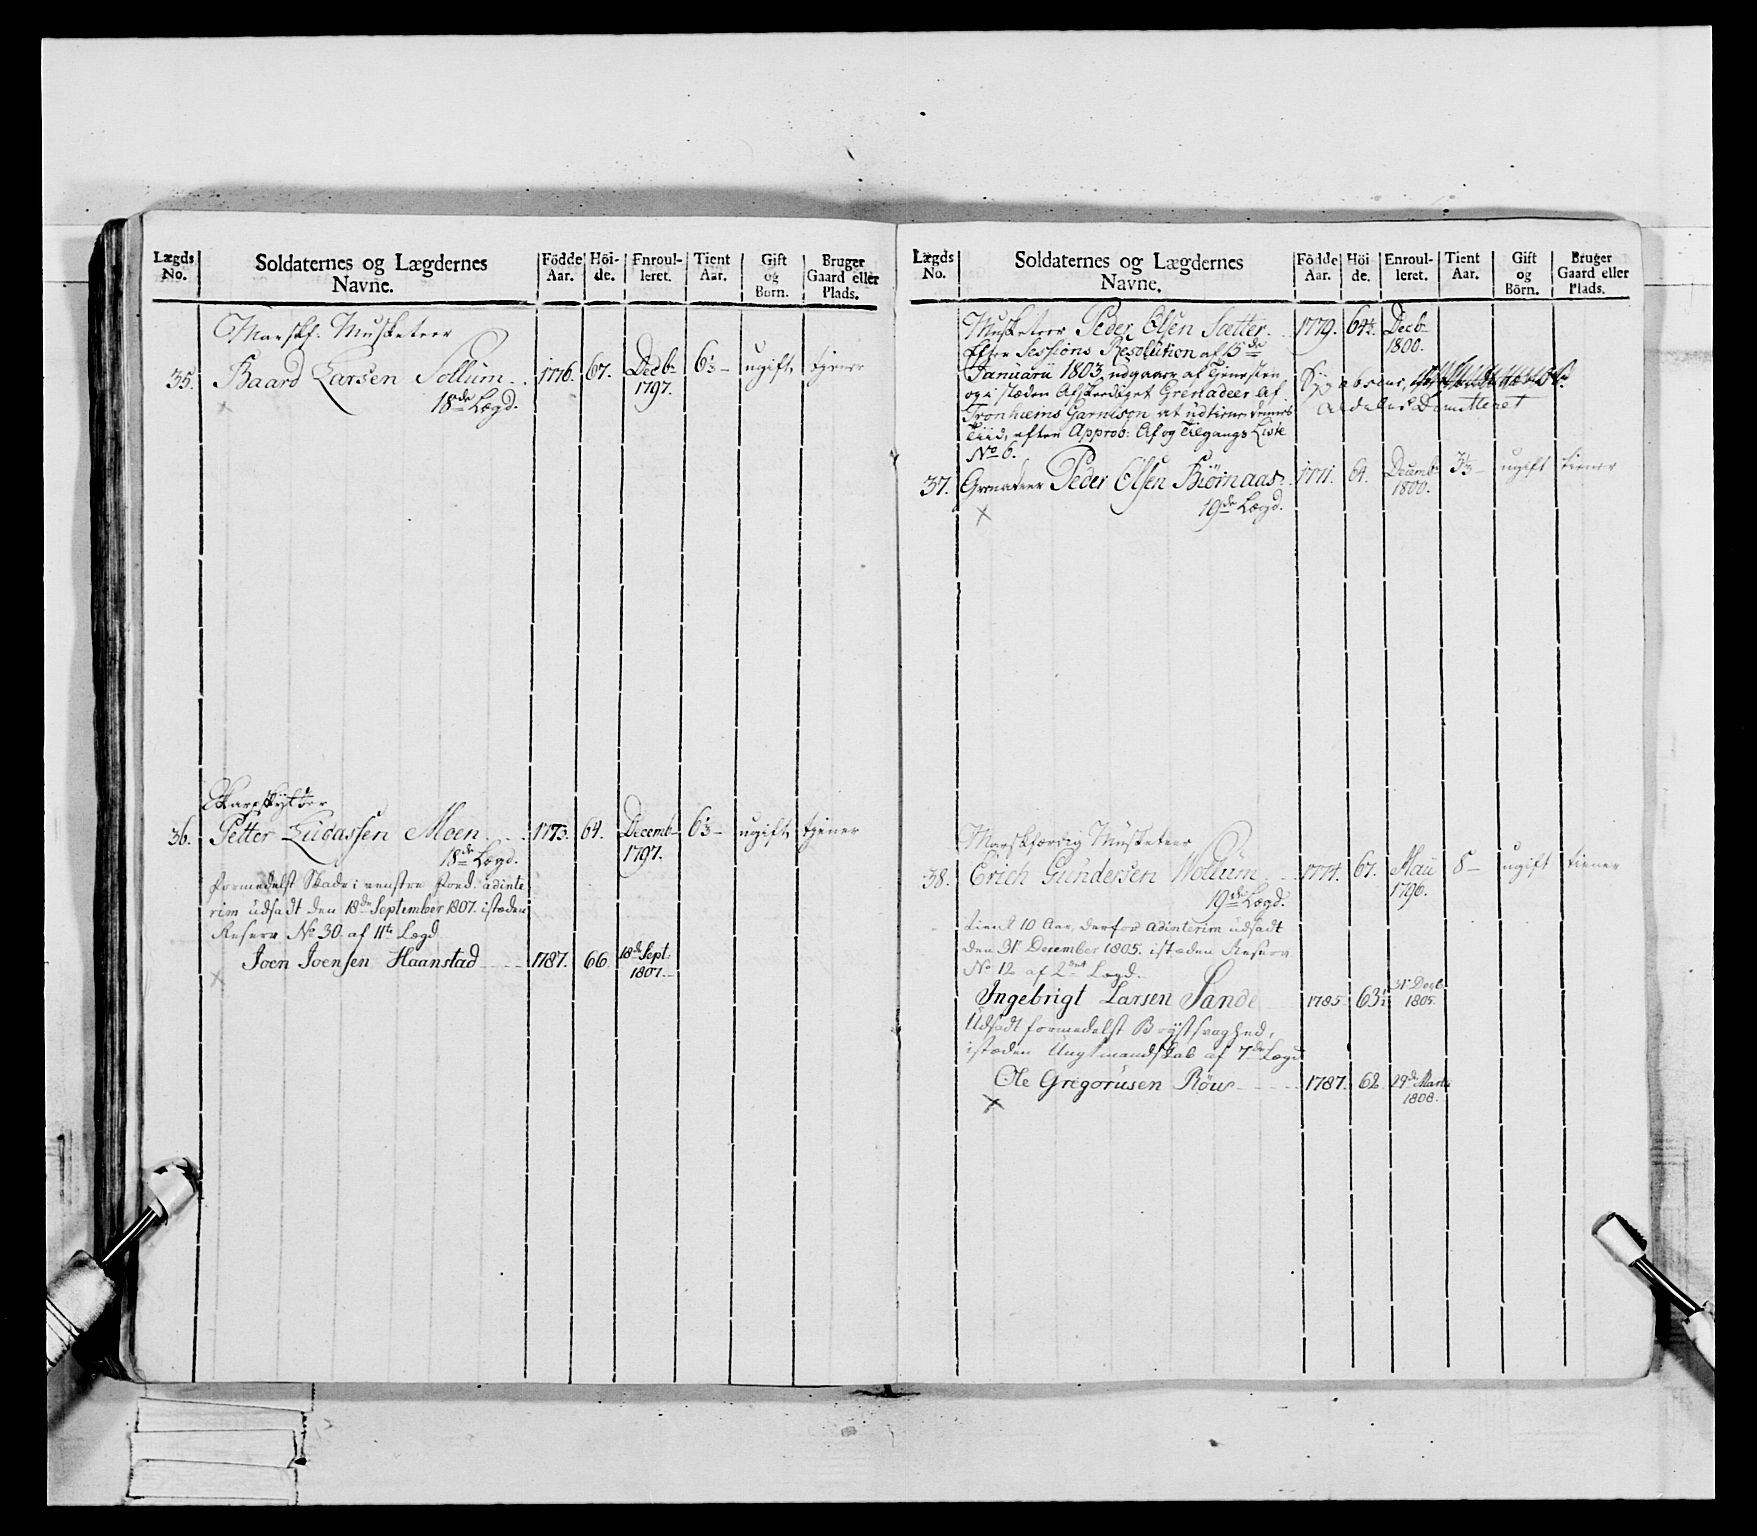 Lægds No. Soldaternes og Lægdernes Navne. Födde Aar. Höi-de. Enroul-leret. Tient Aar. Gift og Børn. Bruger Gaard eller Plads.
Marskf. Musketeer
35. Baard Larsen Sollum. 1776. 67. Decb. 1797. 6½ ugift tjener
18de Lægd.
Skarpskytter
36. Petter Ludassen Moen. 1773. 64. Decemb. 1797. 6½ ugift tjener
18de Lægd.
formedelst Skade i venstre Foed. adinte
rim udsadt den 18de September 1807. istæden
Reserv No 30. af 11te Lægd
Joen Joensen Haanstad 1787. 66. 18de Sept. 1807.
Lægds No. Soldaternes og Lægdernes Navne. Födde Aar. Höi de. Enroul-leret. Tient Aar. Gift og Börn. Bruger Gaard eller Plads.
Musketeer Peder Olsen Sætter. 1779. 64½. Decb. 1800.
Efter Sessions Resolution af 15de
Januarii 1803 udgaaer af Tjenesten
og i stæden Afskediget Grenadeer af
Tronhiems Garnison at udtiene dennes
Tiid, efter Approb: Af og Tilgangs Liste
No 6.
Demitteret
37. Grenadeer Peder Olsen Biörnaas. 1771. 64. Decemb. 1800. 3½ ugift tiener
19de Lægd.
Marskfærdig Musketeer
38. Erich Gundersen Wollum. 1774. 67. Maii 1796. 8 ugift tiener
19de Lægd.
tient 10 Aar, derfor adinterim udsadt
den 31te December 1805. istæden Reserv
No 12 af 2den Lægd.
Ingebrigt Larsen Sande 1785 63½ 31te Decb. 1805.
Udsadt formedelst Brystsvaghed,
istæden Ungtmandskab af 7de Lægd
Ole Gregoriusen Röus 1787. 62 29de Marti 1808.